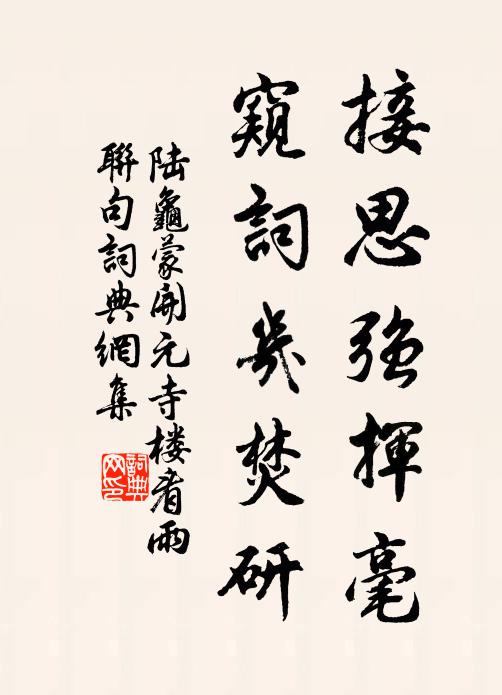 接思强揮毫
窺詞幾焚研
陆龜蒙開元寺楼看雨
聯句詞典網集
詞典网印